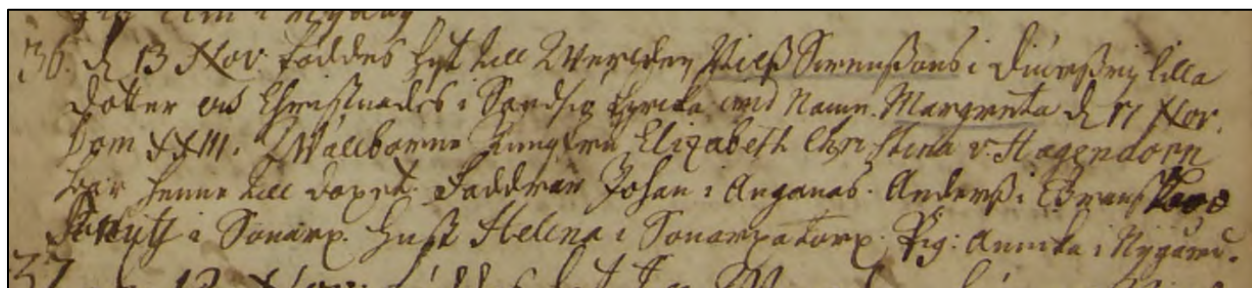 i Nygård
36. d 13 Nov. föddes hijt till Werlden Nilß Swenßons i Diurßryd lilla
dotter och Christnades i Sandsiö kyrka med Namn. Margreta d 17 Nov.
Dom XXIII. Wälborne Jungfru Elizabeth Christina v. Hagendorn
bar henne till dopet. Faddrar Johan i Änganäs. Anderß i
i Sonarp. Hust Helena i Sonarpatorp. Pig: Annika i Nygård.
37 12 Nov. föddes